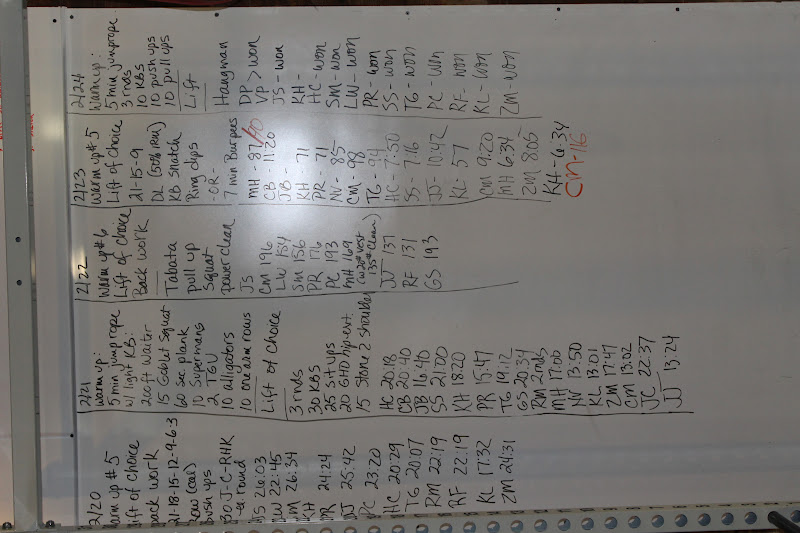 2/20
warm up #5
Lift of choice
Back work
21-18-15-12-9-6-3
Row (cal)
push ups
30 J-C-RHK
round
JS 26:03
LW 22:45
26:34
KH
24:24
25:42
PC 23:20
HC 20:29
TG 20:07
RM 22:19
RF 22:19
KL 17:32
ZM 21:31
2/21
Warm up:
5 min jumprope
w/ light KB:
200ft Waiter
15 Goblet Squat
60 sec plank
10 Supermans
2 TGU
10 alligators
10 one arm rows
Lift of Choice
3 rnds
30 KBS
25 situps
20 GHD hip ext.
15 Stone 2 Shoulder
HC 20:18
CB 20:40
JB 16:40
SS 21:00
KH 18:20
PR 15:47
TG 19:12
GS 20:34
RM 2 rnds
MH 17:00
NV 13:50
KL 13:01
ZM 17:47
CM 13:02
JC 22:37
JJ 13:24
2/22
Warm up #6
Lift of Choice
Back work
Tabata
pull up
Squat
power clean
JS
CM 196
LW 154
SM 156
PR 176
PC 193
MH 169
(w/20# vest
135# Clean)
JV 137
RF 131
GS 193
2/23
Warm up #5
Lift of Choice
21-15-9
DL
KB Snatch
Ring dips
-OR-
7 min Burpees
MH - 87/90
CB - 11:20
JB -
KH - 71
PR - 71
NV - 85
CM - 98
TG - 94
HC - 7:50
SS - 7:16
JJ 10:42
KL - 57
9:20
MH 6:34
ZM 8:05
KH - 6:34
Cin - 116
2/24
Warmup:
5 min jumprope
3 rnds
10 KBS
10 push ups
10 pull ups
Lift
Hangman
DP > won
VP
JS - won
KH -
HC - won
SM - won
LW - won
PR - won
SS - won
TG - won
PC - won
RF won
KL - won
ZM - won